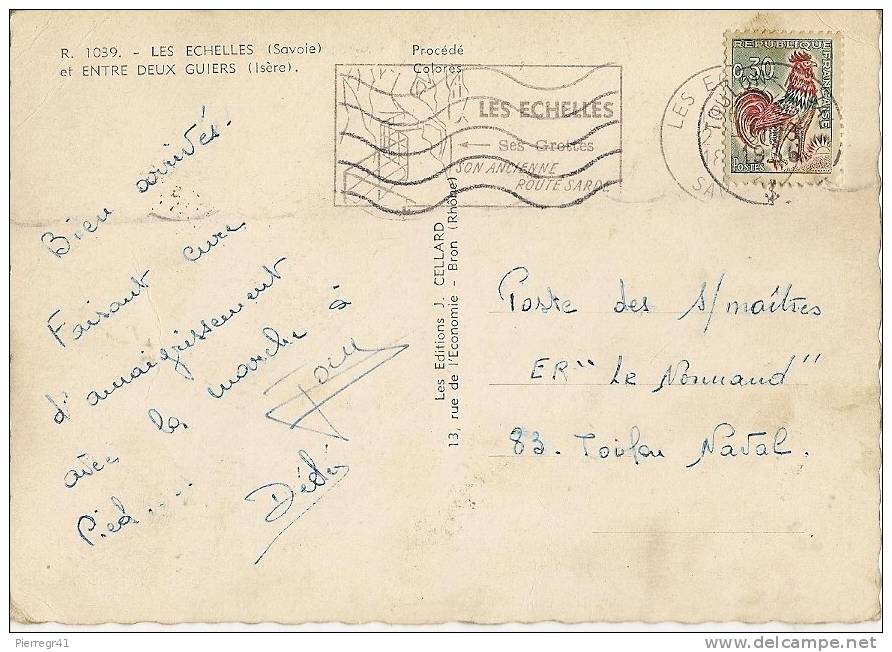 R. 1039. - LES ECHELLES (Savoie)
et ENTRE DEUX GUIERS (Isère).
Procédé
Colorex
LES ECHELLES
Ses Grottes
SON ANCIENNE
ROUTE SARDE
REPUBLIQUE
FRANÇAISE
0,30
POSTES
Bien arrivés.
Faisant cure
d'amaigrissement
avec la marche à
Pied.....
Dédés
Les Editions J. CELLARD
13, rue de l'Economie - Bron (Rhône)
Poste des s/maîtres
ER "Le Normand"
83. Toulon Naval.
Pierregr41
delcampe.net